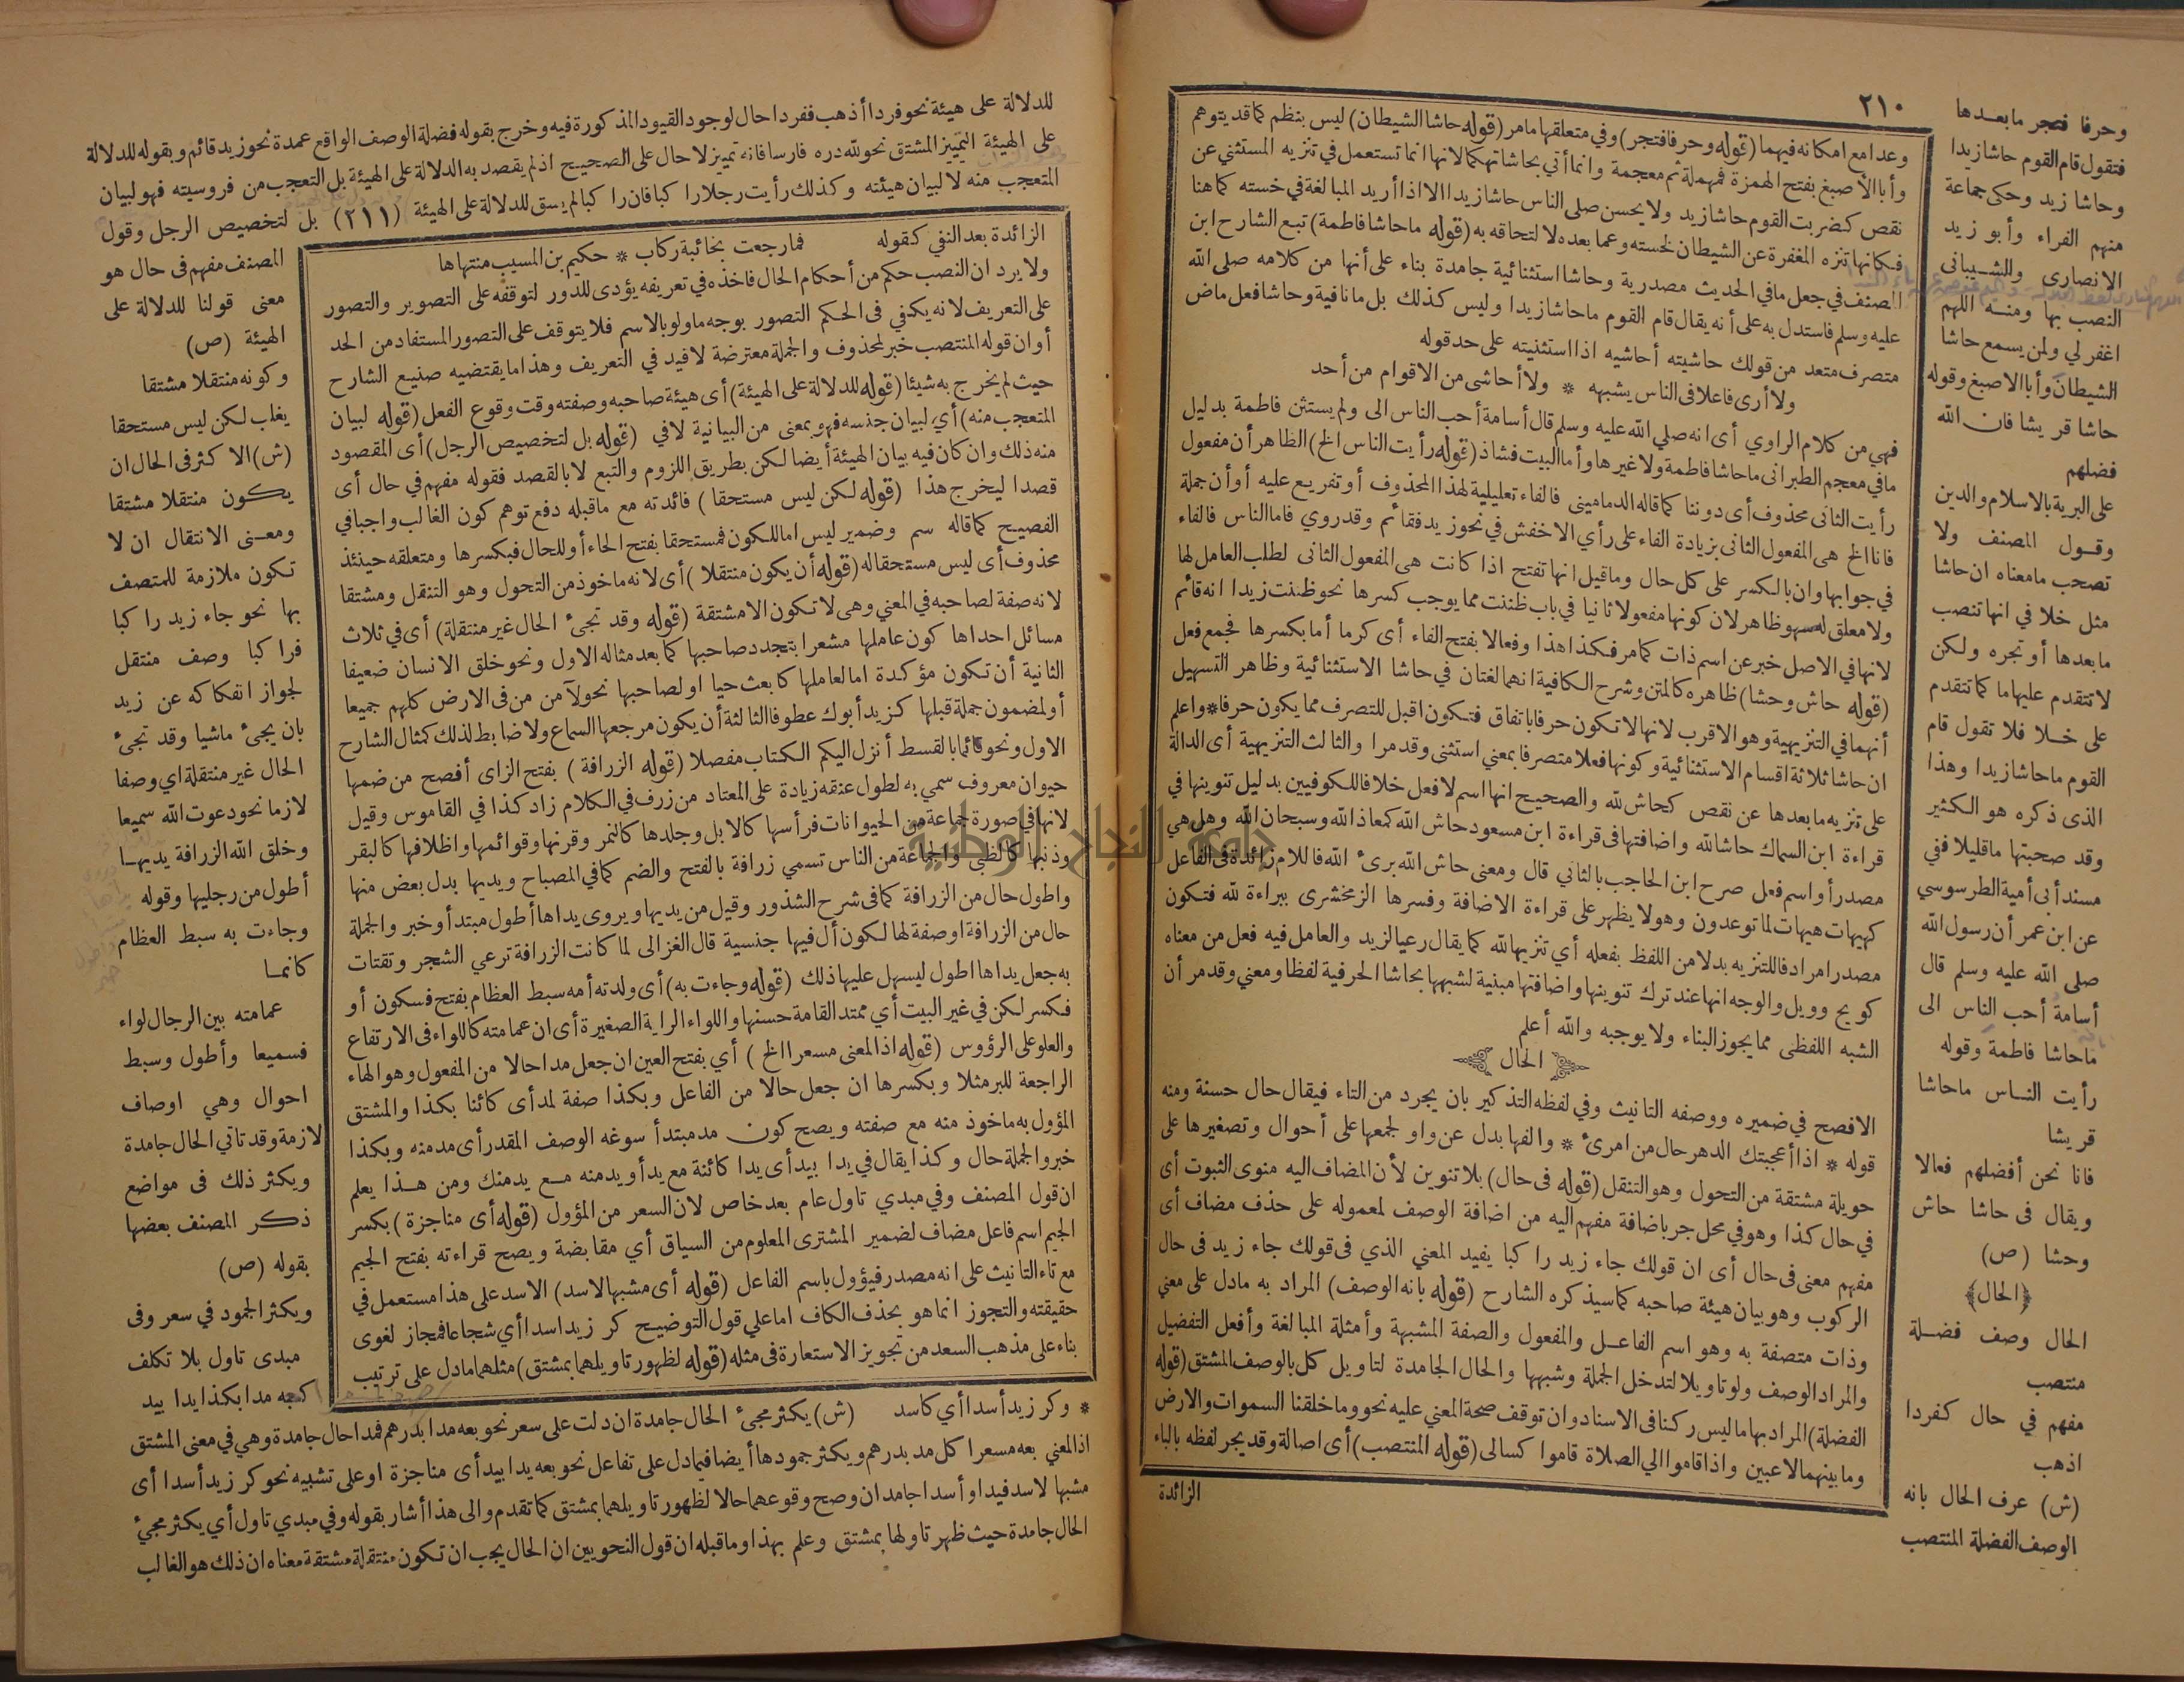 ٢١٠
وحرفا فتجر ما بعدها
فتقول قام القوم حاشا زيدا
وحاشا زيد وحكى جماعة
منهم الفراء وأبو زيد
الانصارى والشيبانى
النصب بها ومنه اللهم
اغفر لي ولمن يسمع حاشا
الشيطان وأبا الاصبغ وقوله
حاشا قريشا فان الله
فضلهم
على البرية بالاسلام والدين
وقول المصنف ولا
تصحب ما معناه ان حاشا
مثل خلا في انها تنصب
ما بعدها أو تجره ولكن
لا تتقدم عليها ما كما تتقدم
على خلا فلا تقول قام
القوم ما حاشا زيدا وهذا
الذى ذكره هو الكثير
وقد صحبتها ما قليلا ففي
مسند أبى أمية الطرسوسي
عن ابن عمر أن رسول الله
صلى الله عليه وسلم قال
أسامة أحب الناس الى
ما حاشا فاطمة وقوله
رأيت الناس ما حاشا
قريشا
فانا نحن أفضلهم فعالا
ويقال فى حاشا حاش
وحشا (ص)
﴿الحال﴾
الحال وصف فضلة
منتصب
مفهم في حال كفردا
اذهب
(ش) عرف الحال بانه
الوصف الفضلة المنتصب
وعدا مع امكانه فيهما (قوله وحرفا فتجر) وفي متعلقها ما مر (قوله حاشا الشيطان) ليس بنظم كما قد يتوهم
وأبا الأصبغ بفتح الهمزة فمهملة ثم معجمة وانما أتي بحاشا تهكما لانها انما تستعمل في تنزيه المستثني عن
نقص كضربت القوم حاشا زيد ولا يحسن صلى الناس حاشا زيدا الا اذا أريد المبالغة في خسته كما هنا
فكانها تنزه المغفرة عن الشيطان لخسته وعما بعده لالتحاقه به (قوله ما حاشا فاطمة) تبع الشارح ابن
المصنف في جعل ما في الحديث مصدرية وحاشا استثنائية جامدة بناء على أنها من كلامه صلى الله
عليه وسلم فاستدل به على أنه يقال قام القوم ما حاشا زيدا وليس كذلك بل ما نافية وحاشا فعل ماض
متصرف متعد من قولك حاشيته أحاشيه اذا استثنيته على حد قوله
ولا أرى فاعلا فى الناس يشبهه * ولا أحاشى من الاقوام من أحد
فهي من كلام الراوي أى انه صلي الله عليه وسلم قال أسامة أحب الناس الى ولم يستثن فاطمة بدليل
ما في معجم الطبرانى ما حاشا فاطمة ولا غيرها وأما البيت فشاذ (قوله رأيت الناس الخ) الظاهر أن مفعول
رأيت الثانى محذوف أى دوننا كما قاله الدمامينى فالفاء تعليلية لهذا المحذوف أو تفريع عليه أو أن جملة
فانا الخ هى المفعول الثانى بزيادة الفاء على رأي الاخفش في نحو زيد فقائم وقد روي فاما الناس فالفاء
في جوابها وان بالكسر على كل حال وما قيل انها تفتح اذا كانت هى المفعول الثانى لطلب العامل لها
ولا معلق له سهو ظاهر لان كونها مفعولا ثانيا في باب ظننت مما يوجب كسرها نحو ظننت زيدا انه قائم
لانها في الاصل خبر عن اسم ذات كما مر فكذا هذا وفعالا بفتح الفاء أى كرما أما بكسرها فجمع فعل
(قوله حاش وحشا) ظاهره كالمتن وشرح الكافية انهما لغتان في حاشا الاستثنائية وظاهر التسهيل
أنهما في التنزيهية وهو الاقرب لانها لا تكون حرفا باتفاق فتكون اقبل للتصرف مما يكون حرفا * واعلم
ان حاشا ثلاثة اقسام الاستثنائية وكونها فعلا متصرفا بمعني استثنى وقد مرا والثالث التنزيهية أى الدالة
على تنزيه ما بعدها عن نقص كحاش لله والصحيح انها اسم لا فعل خلافا للكوفيين بدليل تنوينها في
قراءة ابن السماك حاشا لله واضافتها فى قراءة ابن مسعود حاش الله كمعاذ الله وسبحان الله وهل هي
مصدر أو اسم فعل صرح ابن الحاجب بالثاني قال ومعنى حاش الله برئ الله فاللام زائدة في الفاعل
كهيهات هيهات لما توعدون وهو لا يظهر على قراءة الاضافة وفسرها الزمخشرى ببراءة لله فتكون
مصدرا مرادفا للتنزيه بدلا من اللفظ بفعله أي تنزيها لله كما يقال رعيا لزيد والعامل فيه فعل من معناه
كويح وويل والوجه انها عند ترك تنوينها واضافتها مبنية لشبهها بحاشا الحرفية لفظا ومعني وقد مر أن
الشبه اللفظى مما يجوز البناء ولا يوجبه والله أعلم
الحال
الافصح في ضميره ووصفه التانيث وفي لفظه التذكير بان يجرد من التاء فيقال حال حسنة ومنه
قوله * اذا أعجبتك الدهر حال من امرئ * والفها بدل عن واو لجمعها على أحوال وتصغيرها على
حويلة مشتقة من التحول وهو التنقل (قوله فى حال) بلا تنوين لأن المضاف اليه منوى الثبوت أى
في حال كذا وهو في محل جر باضافة مفهم اليه من اضافة الوصف لمعموله على حذف مضاف أى
مفهم معنى فى حال أى ان قولك جاء زيد راكبا يفيد المعني الذي فى قولك جاء زيد فى حال
الركوب وهو بيان هيئة صاحبه كما سيذكره الشارح (قوله بانه الوصف) المراد به ما دل على معني
وذات متصفة به وهو اسم الفاعل والمفعول والصفة المشبهة وأمثلة المبالغة وأفعل التفضيل
والمراد الوصف ولو تاويلا لتدخل الجملة وشبهها والحال الجامدة لتاويل كل بالوصف المشتق (قوله
الفضلة) المراد بها ما ليس ركنا فى الاسناد وان توقف صحة المعني عليه نحو وما خلقنا السموات والارض
وما بينهما لاعبين واذا قاموا الي الصلاة قاموا كسالى (قوله المنتصب) أى اصالة وقد يجر لفظه بالباء
الزائدة
للدلالة على هيئة نحو فردا أذهب ففردا حال لوجود القيود المذكورة فيه وخرج بقوله فضلة الوصف الواقع عمدة نحو زيد قائم وبقوله للدلالة
على الهيئة التمييز المشتق نحو لله دره فارسا فانه تمييز لا حال على الصحيح اذ لم يقصد به الدلالة على الهيئة بل التعجب من فروسيته فهو لبيان
المتعجب منه لا لبيان هيئته وكذلك رأيت رجلا راكبا فان راكبا لم يسق للدلالة على الهيئة (٢١١) بل لتخصيص الرجل وقول
المصنف مفهم فى حال هو
معنى قولنا للدلالة على
الهيئة (ص)
وكونه منتقلا مشتقا
يغلب لكن ليس مستحقا
(ش) الاكثر فى الحال ان
يكون منتقلا مشتقا
ومعنى الانتقال ان لا
تكون ملازمة للمتصف
بها نحو جاء زيد راكبا
فراكبا وصف منتقل
لجواز انفكاكه عن زيد
بان يجئ ماشيا وقد تجئ
الحال غير منتقلة اي وصفا
لازما نحو دعوت الله سميعا
وخلق الله الزرافة يديها
أطول من رجليها وقوله
وجاءت به سبط العظام
كانما
عمامته بين الرجال لواء
فسميعا وأطول وسبط
احوال وهي اوصاف
لازمة وقد تاتي الحال جامدة
ويكثر ذلك فى مواضع
ذكر المصنف بعضها
بقوله (ص)
ويكثر الجمود في سعر وفى
مبدى تاول بلا تكلف
كبعه مدا بكذا يدا بيد
الزائدة بعد النفي كقوله فما رجعت بخائبة ركاب * حكيم بن المسيب منتهاها
ولا يرد ان النصب حكم من أحكام الحال فاخذه في تعريفه يؤدى للدور لتوقفه على التصوير والتصور
على التعريف لانه يكفي فى الحكم التصور بوجه ما ولو بالاسم فلا يتوقف على التصور المستفاد من الحد
أو ان قوله المنتصب خبر لمحذوف والجملة معترضة لا قيد في التعريف وهذا ما يقتضيه صنيع الشارح
حيث لم يخرج به شيئا (قوله للدلالة على الهيئة) أى هيئة صاحبه وصفته وقت وقوع الفعل (قوله لبيان
المتعجب منه) أي لبيان جنسه فهو بمعنى من البيانية لا في (قوله بل لتخصيص الرجل) أى المقصود
منه ذلك وان كان فيه بيان الهيئة أيضا لكن بطريق اللزوم والتبع لا بالقصد فقوله مفهم في حال أى
قصدا ليخرج هذا (قوله لكن ليس مستحقا) فائدته مع ما قبله دفع توهم كون الغالب واجبا في
الفصيح كما قاله سم وضمير ليس اما للكون فمستحقا بفتح الحاء أو للحال فبكسرها ومتعلقه حينئذ
محذوف أى ليس مستحقا له (قوله أن يكون منتقلا) أى لانه ماخوذ من التحول وهو التنقل ومشتقا
لانه صفة لصاحبه في المعني وهى لا تكون الا مشتقة (قوله وقد تجئ الحال غير منتقلة) أى في ثلاث
مسائل احداها كون عاملها مشعرا بتجدد صاحبها كما بعد مثاله الاول ونحو خلق الانسان ضعيفا
الثانية أن تكون مؤكدة اما لعاملها كابعث حيا او لصاحبها نحو لآمن من فى الارض كلهم جميعا
أو لمضمون جملة قبلها كزيد أبوك عطوفا الثالثة أن يكون مرجعها السماع ولا ضابط لذلك كمثال الشارح
الاول ونحو قائما بالقسط أنزل اليكم الكتاب مفصلا (قوله الزرافة) بفتح الزاى أفصح من ضمها
حيوان معروف سمي به لطول عنقه زيادة على المعتاد من زرف في الكلام زاد كذا في القاموس وقيل
لانها في صورة جماعة من الحيوانات فرأسها كالابل وجلدها كالنمر وقرنها وقوائمها واظلافها كالبقر
وذنبها كالظبى والجماعة من الناس تسمي زرافة بالفتح والضم كما في المصباح ويديها بدل بعض منها
واطول حال من الزرافة كما فى شرح الشذور وقيل من يديها ويروى يداها أطول مبتدأ وخبر والجملة
حال من الزرافة او صفة لها لكون أل فيها جنسية قال الغزالى لما كانت الزرافة ترعي الشجر وتقتات
به جعل يداها اطول ليسهل عليها ذلك (قوله وجاءت به) أى ولدته أمه سبط العظام بفتح فسكون أو
فكسر لكن في غير البيت أي ممتد القامة حسنها واللواء الراية الصغيرة أى ان عمامته كاللواء فى الارتفاع
والعلو على الرؤوس (قوله اذ المعنى مسعرا الخ) أي بفتح العين ان جعل مدا حالا من المفعول وهو الهاء
الراجعة للبر مثلا وبكسرها ان جعل حالا من الفاعل وبكذا صفة لمد أى كائنا بكذا والمشتق
المؤول به ماخوذ منه مع صفته ويصح كون مد مبتدأ سوغه الوصف المقدر أى مد منه وبكذا
خبر والجملة حال وكذا يقال في يدا بيد أى يدا كائنة مع يد أو يد منه مع يد منك ومن هذا يعلم
ان قول المصنف وفي مبدي تاول عام بعد خاص لان السعر من المؤول (قوله أى مناجزة) بكسر
الجيم اسم فاعل مضاف لضمير المشترى المعلوم من السياق أي مقابضة ويصح قراءته بفتح الجيم
مع تاء التانيث على انه مصدر فيؤول باسم الفاعل (قوله أى مشبها الاسد) الاسد على هذا مستعمل في
حقيقته والتجوز انما هو بحذف الكاف اما علي قول التوضيح كر زيد اسدا أي شجاعا فمجاز لغوى
بناء على مذهب السعد من تجويز الاستعارة فى مثله (قوله لظهور تاويلهما بمشتق) مثلهما ما دل على ترتيب
* وكر زيد أسدا أي كاسد (ش) يكثر مجئ الحال جامدة ان دلت على سعر نحو بعه مدا بدرهم فمدا حال جامدة وهي في معنى المشتق
اذ المعني بعه مسعرا كل مد بدرهم ويكثر جمودها أيضا فيما دل على تفاعل نحو بعه يدا بيد أى مناجزة او على تشبيه نحو كر زيد أسدا أى
مشبها لاسد فيد او أسدا جامدان وصح وقوعهما حالا لظهور تاويلهما بمشتق كما تقدم والى هذا أشار بقوله وفي مبدي تاول أي يكثر مجئ
الحال جامدة حيث ظهر تاولها بمشتق وعلم بهذا وما قبله ان قول النحويين ان الحال يجب ان تكون منتقلة مشتقة معناه ان ذلك هو الغالب
جامعة النجاح الوطنية